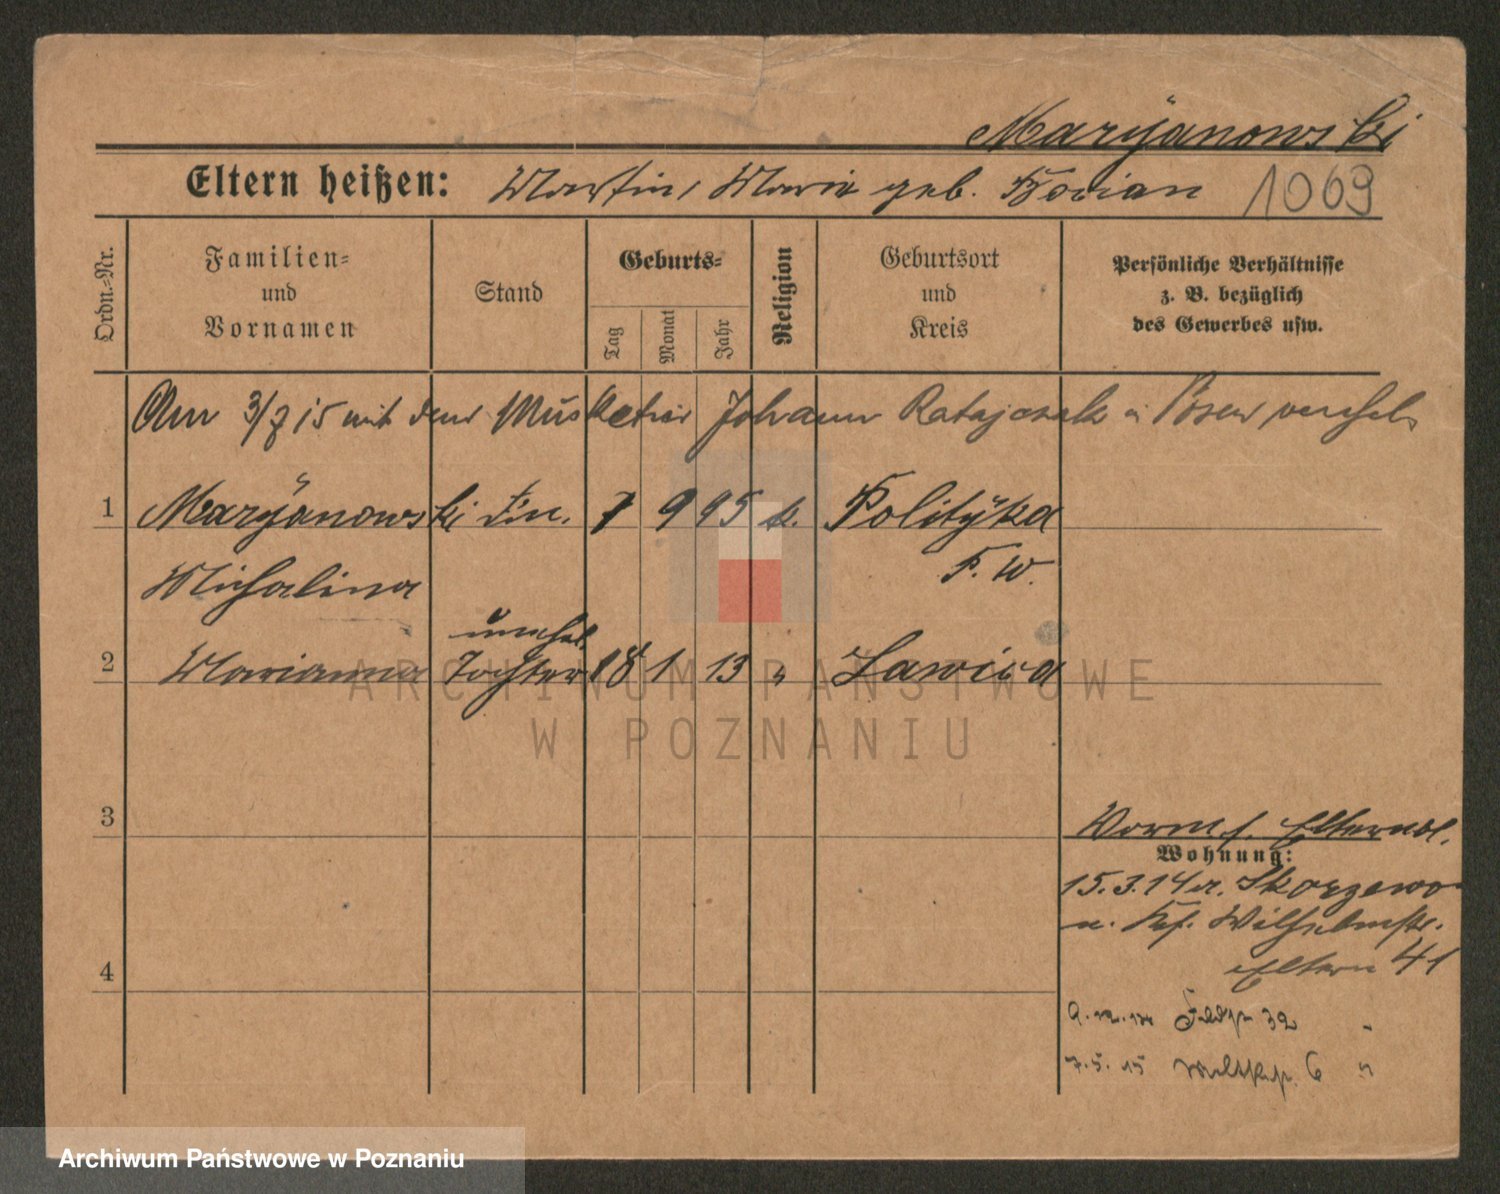 Maryanowski
Eltern heißen: Martin, Marie geb. Bozian 1069
Ordn.-Nr.
Familien-
und
Vornamen
Stand
Geburts-
Tag
Monat
Jahr
Religion
Geburtsort
und
Kreis
Persönliche Verhältnisse
z. B. bezüglich
des Gewerbes usw.
Am 3/7 15 mit dem Musketier Johann Ratajczak in Posen verehel.
1 Maryanowski 7 9 95 k. Politÿka
Michalina P. W.
unehel.
2 Marianna Tochter 18 1 13 " Lawica
3
Wohnung:
15.3.14 Skorzewo
Wilhelmstr.
Eltern 41
4
32 "
7.5.15 6 "
ARCHIWUM PAŃSTWOWE
W POZNANIU
Archiwum Państwowe w Poznaniu